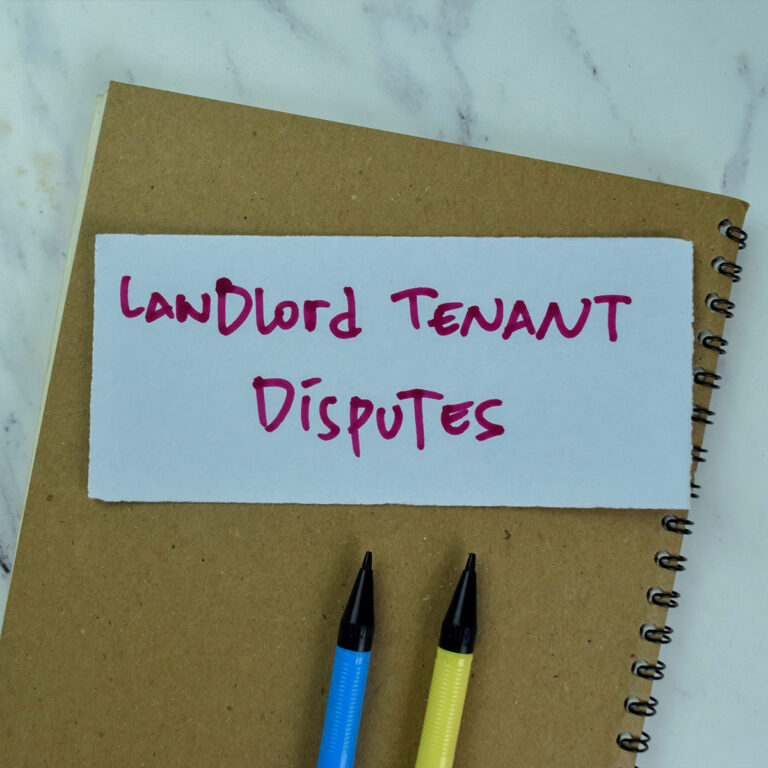 LANDlord TENANT
DispuTES